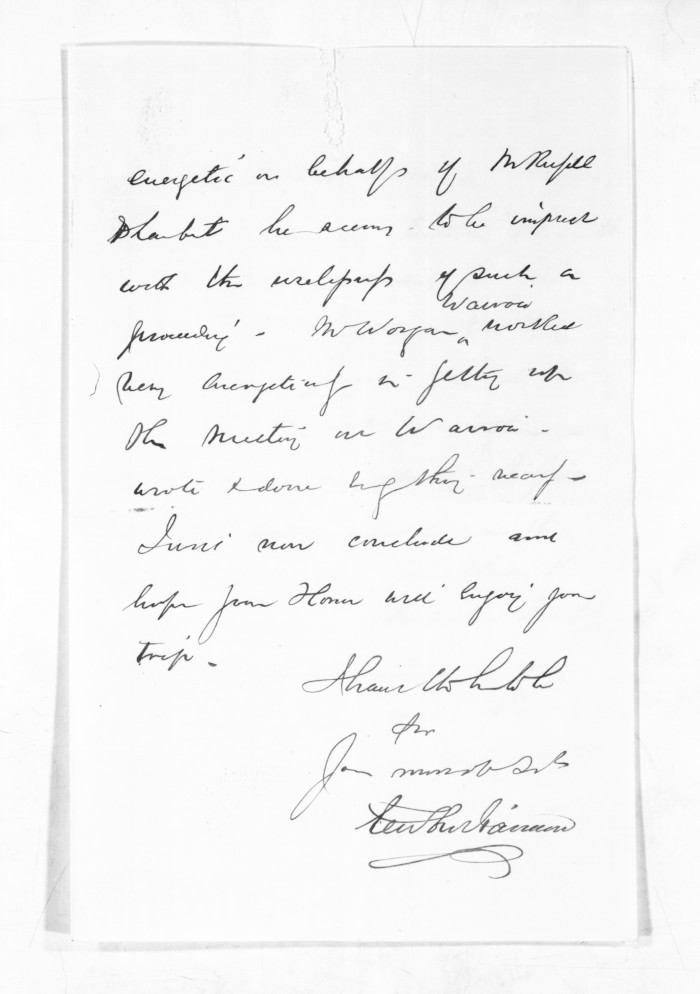 energetic on behalf of Mr Russell
but he seems to be imprest
with the uselessness of such a
proceeding - Mr Worgan
Wairoa
worked
very energetically in getting up
the meeting in Wairoa -
wrote & done everything nearly -
I will now conclude and
hope your Honor will enjoy your
trip -
I have
the
Your most obt Svt